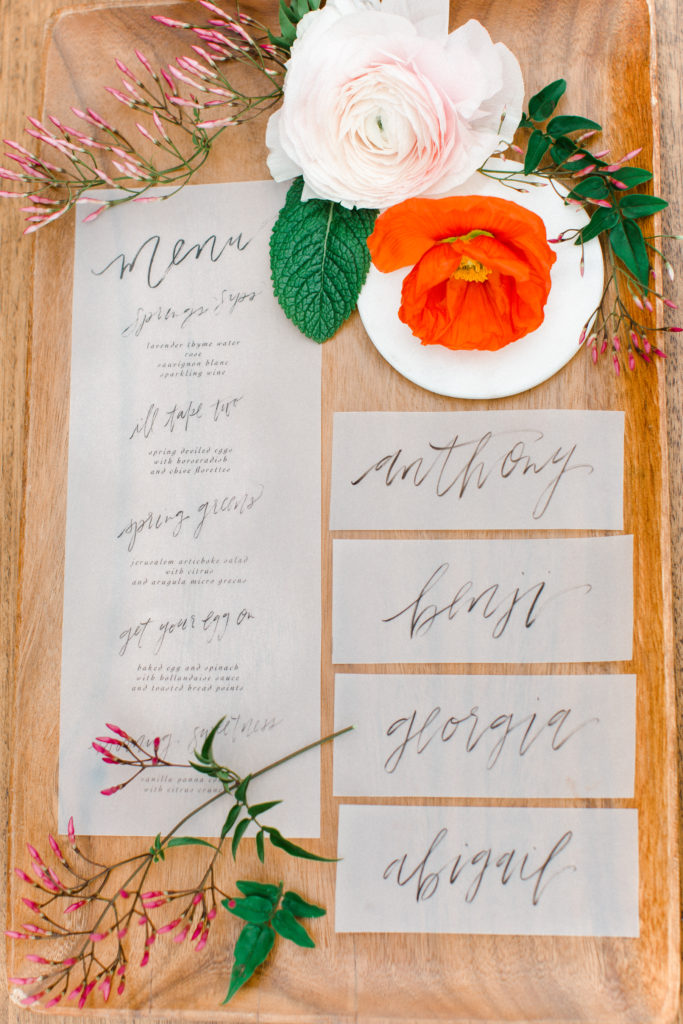 menu
springs sips
lavender thyme water
rose
sauvignon blanc
sparkling wine
ill take two
spring deviled eggs
with horseradish
and chive florettes
spring greens
jerusalem artichoke salad
with citrus
and arugula micro greens
get your egg on
baked egg and spinach
with hollandaise sauce
and toasted bread points
sweetness
vanilla panna
with citrus
anthony
benji
georgia
abigail